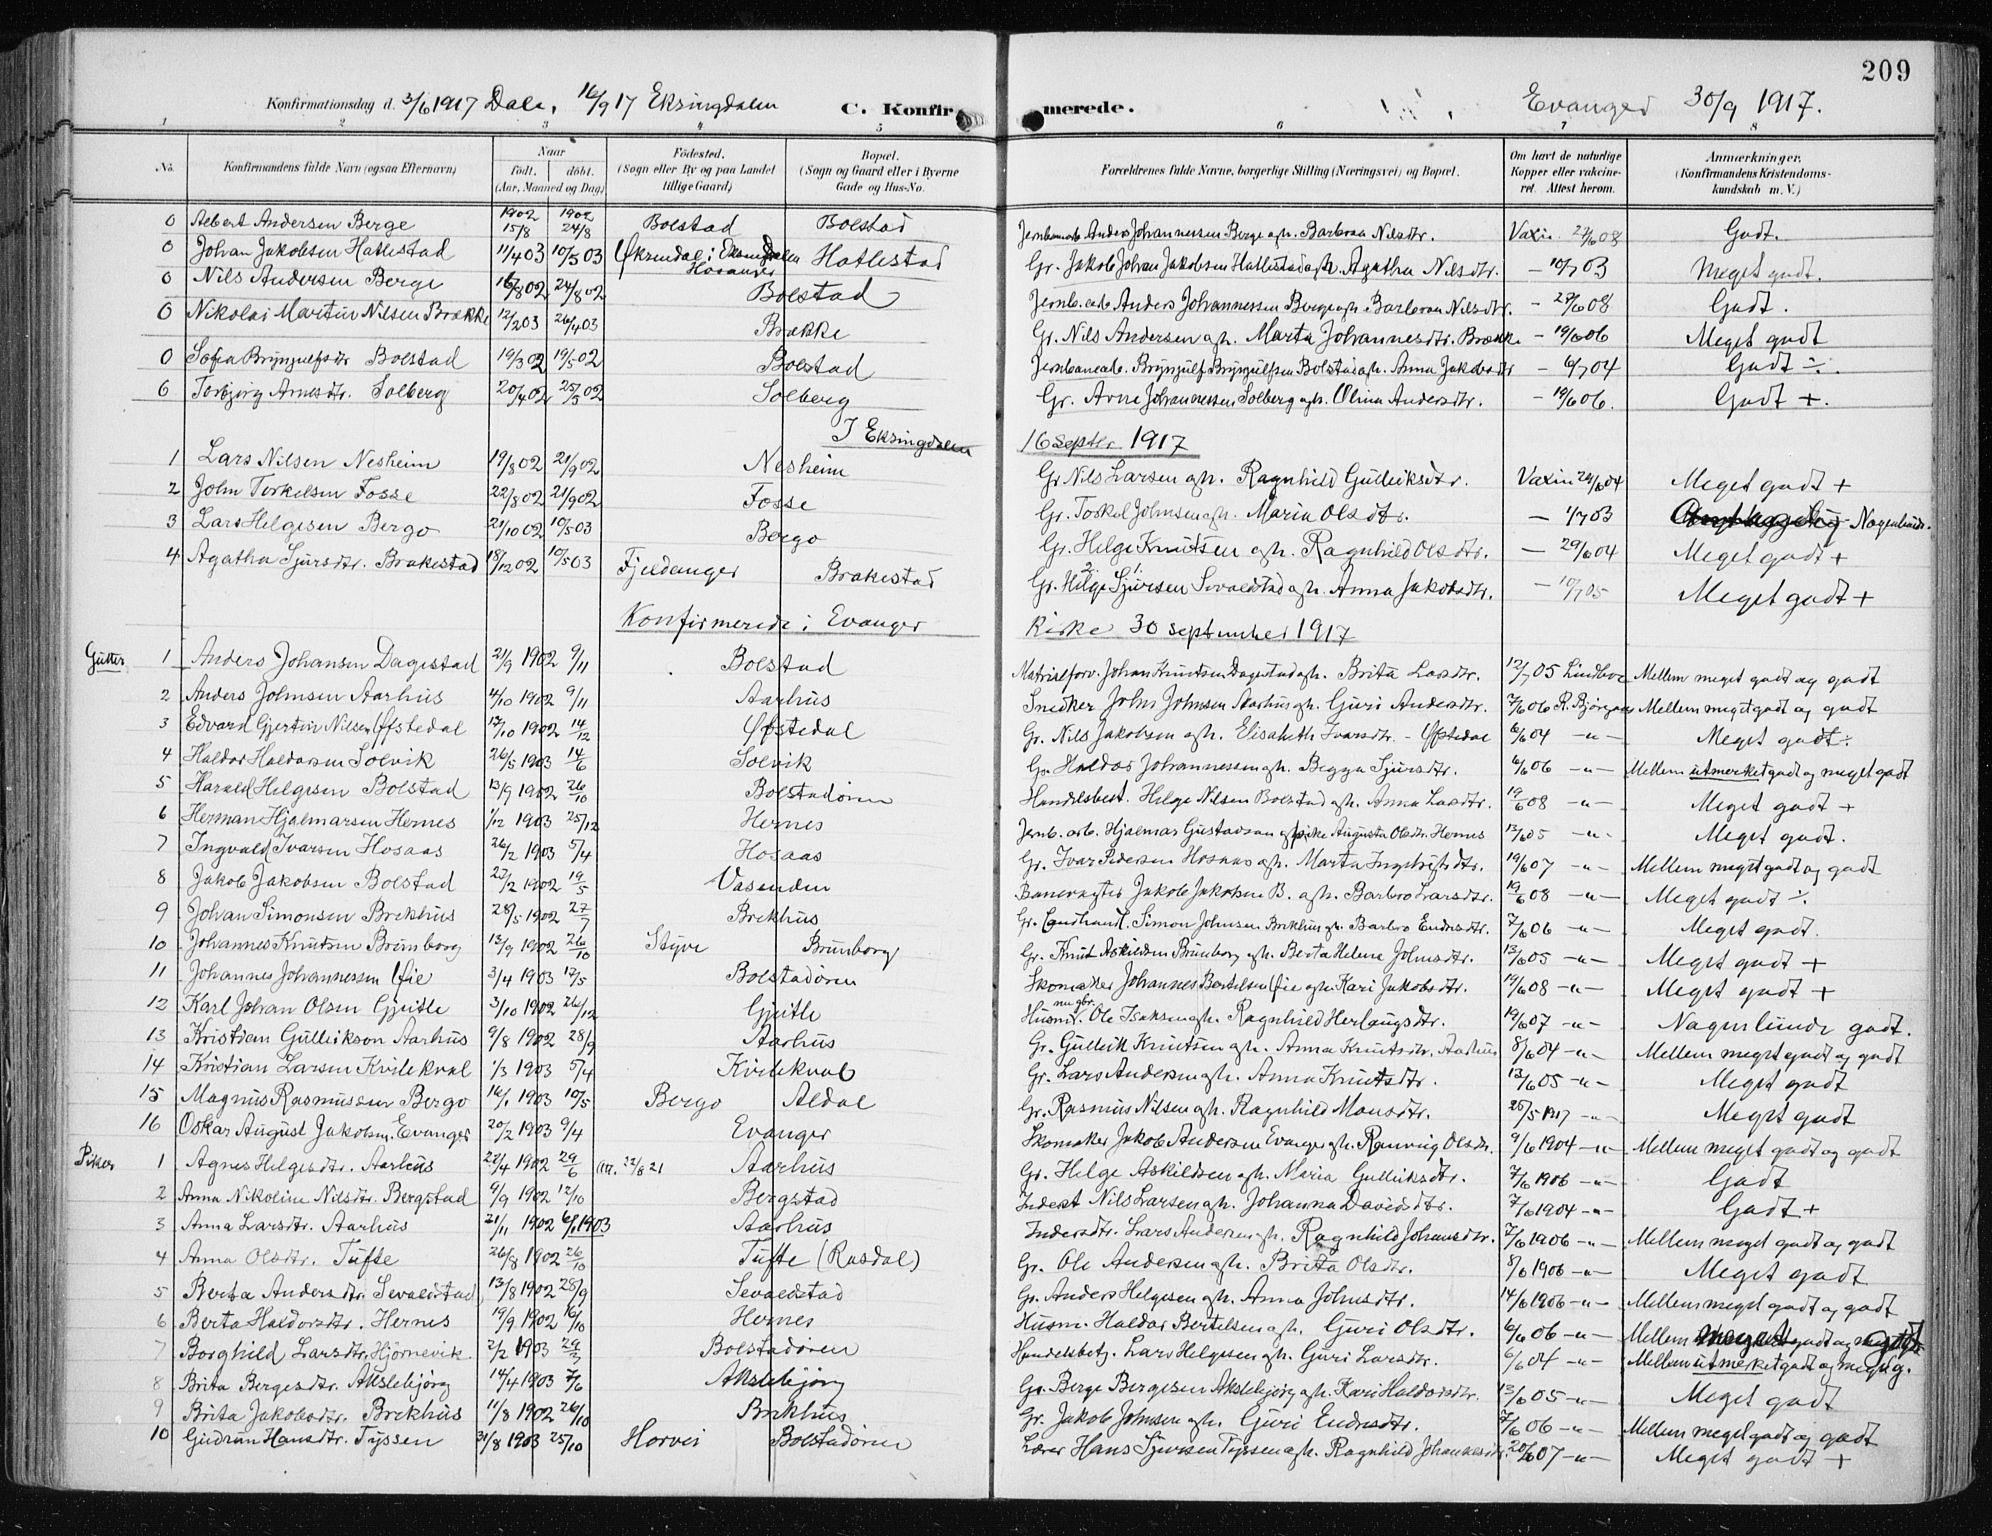 209
Konfirmationsdag d. 3/6 1917 Dale, 16/9 17 Eksingdalen C. Konfirmerede. Evanger 30/9 1917.
1 2 3 4 5 6 7 8
No. Konfirmandens fulde Navn (ogsaa Efternavn) Naar født. døbt. (Aar, Maaned og Dag) Fødested. (Sogn eller By og paa Landet tillige Gaard) Bopæl. (Sogn og Gaard eller i Byerne Gade og Hus-No. Forældrenes fulde Navne, borgerlige Stilling (Næringsvei) og Bopæl. Om havt de naturlige Kopper eller vakcineret. Attest herom. Anmærkninger. (Konfirmandens Kristendomskundskab m. V.)
0 Albert Andersen Berge 1902 15/8 1902 24/8 Bolstad Bolstad Jernbanearb Anders Johannessen Berge og h. Barbraa Nilsdtr. Vaxin. 27/6 08 Godt.
0 Johan Jakobsen Hatlestad 11/4 03 10/5 03 Øksendal i Eksingdalen Hosanger Hatlestad Gr. Jakob Johan Jakobsen Hatlestad og h. Agatha Nilsdtr. — 10/7 03 Meget godt.
0 Nils Andersen Berge 15/8 02 24/8 02 Bolstad Jernb.arb Anders Johannessen Berge og h. Barbraa Nilsdtr. — 27/6 08 Godt.
0 Nikolai Martin Nilsen Brække 12/2 03 26/4 03 Brække Gr. Nils Andersen og h. Marta Johannesdtr. Brække — 19/6 06 Meget godt
0 Sofia Brynjulfsdtr Bolstad 19/3 02 19/5 02 Bolstad Jernbanearb. Brynjulf Brynjulfsen Bolstad og h. Anna Jakobsdtr — 6/7 04 Godt ÷.
6 Torbjørg Arnesdtr. Solberg 20/4 02 25/5 02 Solberg Gr. Arne Johannessen Solberg og h. Olina Andersdtr. — 19/6 06. Godt +.
I Eksingdalen 16 septbr 1917
1 Lars Nilsen Nesheim 19/8 02 21/9 02 Nesheim Gr Nils Larsen og h. Ragnhild Gulleiksdtr. Vaxin 29/6 04 Meget godt +
2 John Torkelsen Fosse 22/8 02 21/9 02 Fosse Gr. Torkel Johnsen og h. Maria Olsdtr. — 1/7 03 Nogenlunde.
3 Lars Helgesen Bergo 21/10 02 10/5 03 Bergo Gr. Helge Knutsen og h. Ragnhild Olsdtr. — 29/6 04 Meget godt +
4 Agatha Sjursdtr. Brakestad 18/12 02 10/5 03 Fjeldanger Brakestad Gr. Helge Sjursen Sevaldstad og h. Anna Jakobsdtr. — 10/7 05 Meget godt +
Konfirmerede i Evanger Kirke 30 september 1917
Gutter 1 Anders Johansen Dagestad 21/9 1902 9/11 Bolstad Matrielforv. Johan Knutsen Dagestad og h. Brita Larsdtr. 12/7 05 Lindboe Mellem meget godt og godt
2 Anders Johnsen Aarhus 4/10 1902 9/11 Aarhus Snedker John Johnsen Aarhus og h. Guri Andersdtr. 7/6 06 R. Bjørgaas Mellem meget godt og godt
3 Edvard Gjertin Nilsen Øfstedal 17/10 1902 14/12 Øfstedal Gr. Nils Jakobsen og h. Elisabeth Ivarsdtr. - Øfstedal 6/6 04 —"— Meget godt ÷.
4 Haldor Haldorsen Solvik 26/5 1903 14/6 Solvik Gr. Haldor Johannessen og h. Begga Sjursdtr. 6/6 06 —"— Mellem utmerket godt og meget godt
5 Harald Helgesen Bolstad 13/9 1902 26/10 Bolstadøren Handelsbest. Helge Nilsen Bolstad og h. Anna Larsdtr. 19/6 08 —"— Meget godt +
6 Herman Hjalmarsen Hernes 1/12 1903 25/12 Hernes Jernb. arb. Hjalmar Gustadson og h. Augusta Olsdtr. Hernes 13/6 05 —"— Meget godt.
7 Ingvald Ivarsen Hosaas 26/2 1903 5/4 Hosaas Gr. Ivar Pedersen Hosaas og h. Marta Ingebrigtsdtr. 19/6 07 —"— Mellem meget godt og godt
8 Jakob Jakobsen Bolstad 27/2 1902 19/5 Vasenden Banevagter Jakob Jakobsen B. og h. Barbro Larsdtr. 19/6 08 —"— Meget godt ÷.
9 Johan Simonsen Brekhus 28/5 1902 27/7 Brekhus Gr. Landhandl. Simon Johnsen Brekhus og h. Barbro Endresdtr. 7/6 06 —"— Meget godt.
10 Johannes Knutsen Brunborg 13/9 1902 26/10 Styve Brunborg Gr. Knut Askildsen Brunborg og h. Berta Helene Johnsdtr. 13/6 05 —"— Meget godt +
11 Johannes Johannessen Øie 3/4 1903 17/5 Bolstadøren Skomaker Johannes Bertelsen Øie og h. Kari Jakobsdtr. 19/6 08 —"— Meget godt +
12 Karl Johan Olsen Gjeitle 3/10 1902 26/12 Gjeitle Husm. Ole Isaksen og h. Ragnhild Herlaugsdtr. 19/6 07 —"— Nogenlunde godt.
13 Kristian Gulleikson Aarhus 9/8 1902 28/9 Aarhus Gr. Gulleik Knutsen og h. Anna Knutsdtr. Aarhus 8/6 04 —"— Mellem meget godt og godt
14 Kristian Larsen Kvilekval 1/3 1903 5/4 Kvilekval Gr. Lars Andersen og h. Anna Knutsdtr. 13/6 05 —"— Meget godt
15 Magnus Rasmussen Bergo 16/1 1903 10/5 Bergo Aldal Gr. Rasmus Nilsen og h. Ragnhild Monsdtr. 25/5 1917 —"— Meget godt
16 Oskar August Jakobsen Evanger 20/2 1903 9/4 Evanger Skomaker Jakob Andersen Evanger og h. Ranveig Olsdtr. 9/6 1904 —"— Mellem meget godt og godt
Piker 1 Agnes Helgesdtr. Aarhus 22/4 1902 29/6 22/8 21 Aarhus Gr. Helge Askildsen og h. Maria Gulleiksdtr. 7/6 1906 —"— Godt
2 Anna Nikoline Nilsdtr. Bergstad 9/9 1902 12/10 Bergstad Inderst Nils Larsen og h. Johanna Davidsdtr. 7/6 1904 —"— Godt +
3 Anna Larsdtr. Aarhus 21/11 1902 6/1 1903 Aarhus Lars Andersen og h. Ragnhild Johansdtr. 7/6 1906 —"— Mellem meget godt og godt
4 Anna Olsdtr. Tufte 26/8 1902 26/10 Tufte (Rasdal) Gr. Ole Andersen og h. Brita Olsdtr. 8/6 1906 —"— Meget godt
5 Berta Andersdtr. Sevaldstad 13/8 1902 28/9 Sevaldstad Gr. Anders Helgesen og h. Anna Johnsdtr. 14/6 1906 —"— Mellem meget godt og godt
6 Berta Haldorsdtr. Hernes 19/9 1902 16/10 Hernes Husm. Haldor Bertelsen og h. Guri Olsdtr. 6/6 06 —"— Mellem meget godt og godt
7 Borghild Larsdtr. Hjørnevik 2/2 1903 Bolstadøren Handelsbetj. Lars Helgesen og h. Guri Larsdtr. 6/6 04 —"— Mellem utmerket godt og meget g.
8 Brita Bergesdtr. Akslebjørg 14/4 1903 7/6 Akslebjørg Gr. Berge Bergesen Akslebjørg og h. Kari Haldorsdtr. 13/6 05 —"— Meget godt
9 Brita Jakobsdtr. Brekhus 11/8 1902 26/10 Brekhus Gr. Jakob Johnsen og h. Guri Endresdtr. 7/6 06 —"— Mellem meget godt og godt
10 Gudrun Hansdtr. Tyssen 31/8 1903 25/10 Horvei Bolstadøren Lærer Hans Sjursen Tyssen og h. Ragnhild Johannesdtr. 20/6 07 —"— Meget godt +